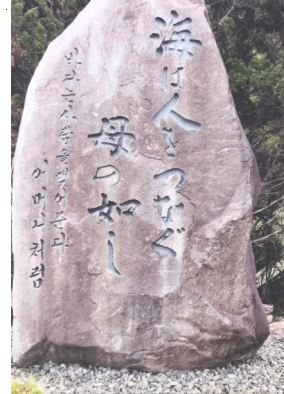 海は人をつなぐ
母の如し
바다는 사람을 맺어준다
어머니처럼